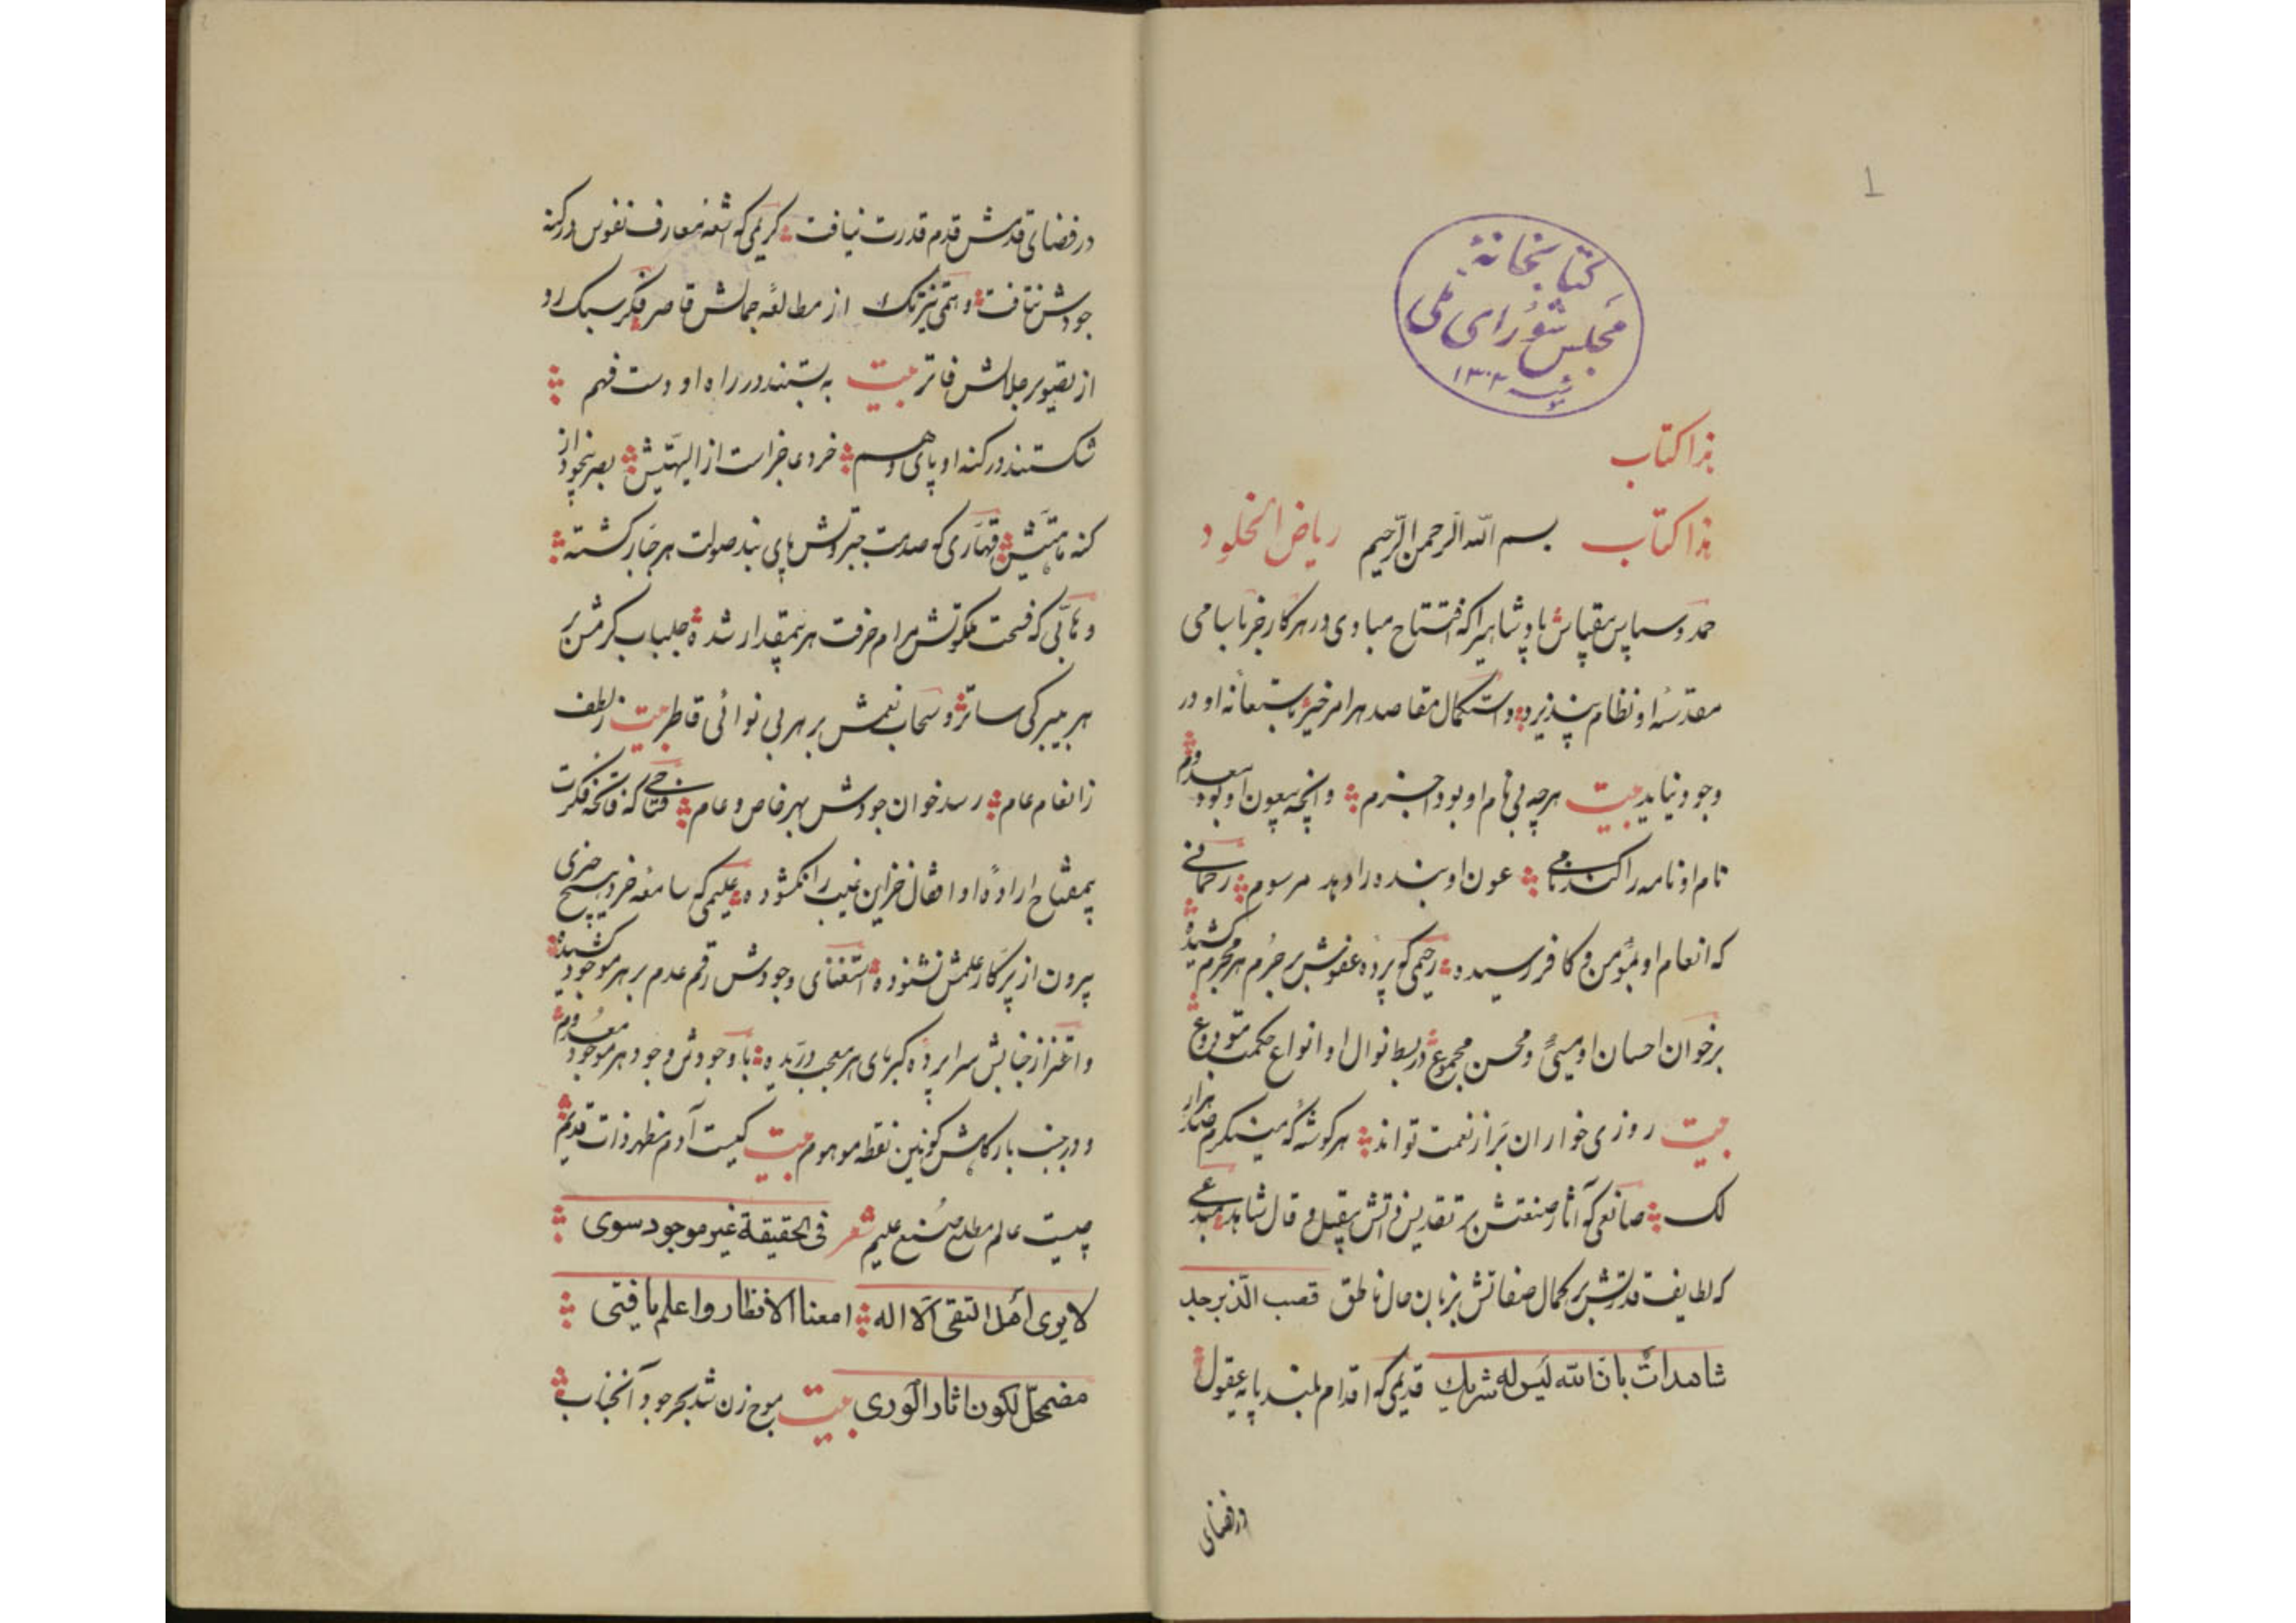 1
کتابخانهٔ
مجلس شورای ملی
۱۳۰۲
هذا کتاب
هذا کتاب بسم الله الرحمن الرحیم ریاض الخلود
حمد و سپاس بیقیاس پادشاهیرا که افتتاح مبادی در هر کار جز بنام سامی
مقدسهٔ او نظام نپذیرد و استکمال مقاصد هر امر خیر باستعانه او در
وجود نیاید بیت هرچه بی نام او بود اجزم و آنچه بیعون او بود معدوم
نام او نامه را کند نامی عون او بنده را دهد مرسوم رحمانی
که انعام او بمؤمن و کافر رسیده رحیمی که پرده عفوش بر جرم هر مجرم کشیده
بر خوان احسان او مسیئ و محسن مجموع در بسط نوال او انواع حکمت
بیت روزی خواران بر از نعمت تواند هر گوشه که مینگرم صد هزار
لک صانعی که آثار صنعتش بر تقدیس ذاتش بقیل و قال شاهد مبدعی
که لطایف قدرتش بر کمال صفاتش بزبان حال ناطق قصب الذبرجد
شاهدات بان الله لیس له شریك قدیمی که اقدام بلند پایه عقول
در فضای
در فضای قدمش قدم قدرت نیافت کریمی که اشعه معارف نفوس در کنه
جودش نتافت وهمی تیزتک از مطالعه جمالش قاصر فکر سبک رو
از تصویر جلالش فاتر بیت به بستند در راه او دست فهم
شکستند در کنه او پای وهم خرد عاجز است از الهیتش بصر بیخود از
کنه ماهیتش قهاری که صدمت جبروتش پای بند صولت هر جبار گشته
وهابی که فسحت ملکوتش مرام حرفت هر بیمقدار شده جلباب کرمش بر
هر بی برگی ساتر و سحاب نعمش بر هر بی نوائی قاطر بیت ز لطف
ز انعام عام رسد خوان جودش بهر خاص و عام فتاحی که فاتحه فکرت
بمفتاح اراده او اقفال خزاین غیب را نگشوده علیمی که سامعه خرد هیچ حرفی
بیرون از پرکار علمش نشنوده استغنای وجودش رقم عدم بر هر موجود کشیده
و اعتزاز جنابش سراپرده کبریای هر معجب دریده با وجودش وجود هر موجود معدوم
و در جنب بارگاهش کونین نقطه موهوم بیت کیست آدم مظهر ذات قدیم
چیست عالم مطلع صنع علیم شعر فی الحقیقة غیر موجود سوی
لا یری اهل التقی الا اله امعنا الانظار واعلم یا فتی
مضمحل لکون اثار الوری بیت موج زن شد بحر جود آنجناب